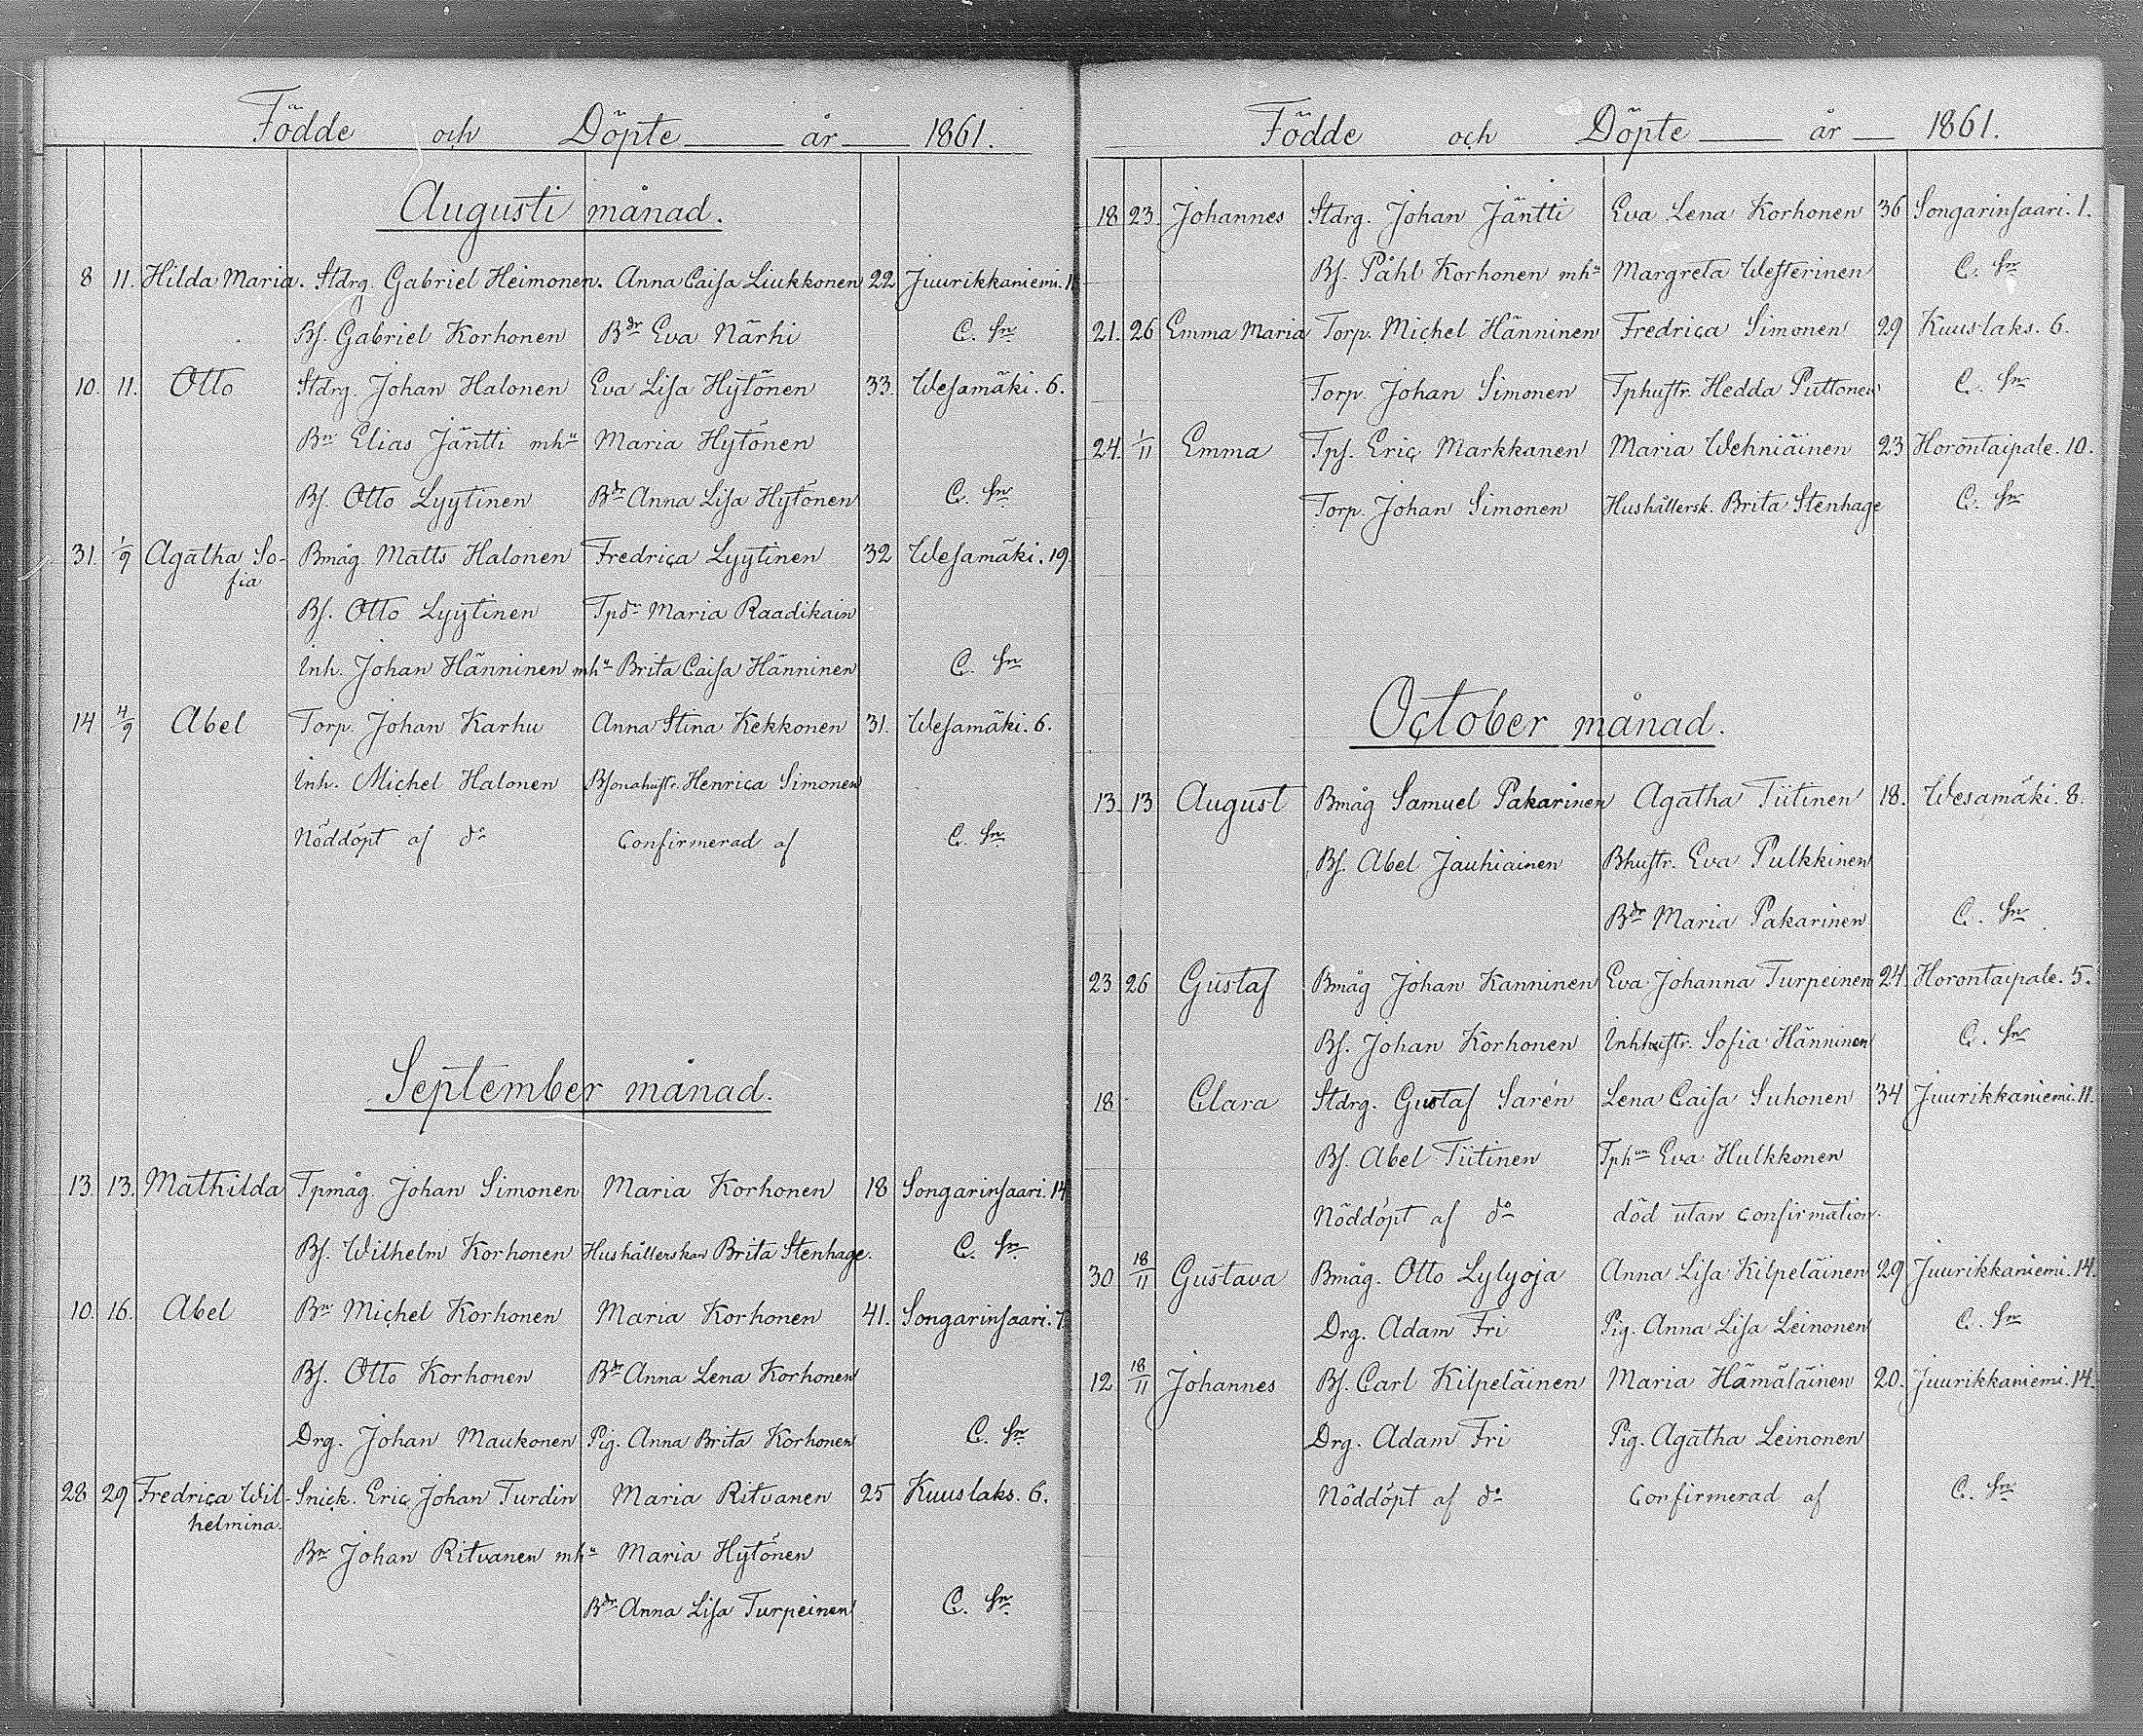 Födde och Döpte år 1861.
Augusti månad.
8 11. Hilda Maria. Stdrg. Gabriel Heimonen. Anna Caisa Liukkonen 22 Juurikkaniemi. 1
Bs. Gabriel Korhonen Bdr Eva Närhi C. Sn
10. 11. Otto Stdrg. Johan Halonen Eva Lisa Hytönen 33. Wesamäki. 6.
Bn Elias Jäntti mhu Maria Hytönen
Bs. Otto Lyytinen Bdr Anna Lisa Hytönen C. Sn
31. 1/9 Agatha So-
fia Bmåg. Matts Halonen Fredrica Lyytinen 32 Wesamäki. 19.
Bs. Otto Lyytinen Tpdr Maria Raadikain
Inh. Johan Hänninen mhu Brita Caisa Hänninen C. Sn
14 4/9 Abel Torp. Johan Karhu Anna Stina Kekkonen 31. Wesamäki. 6.
Inh. Michel Halonen Bsonahustr. Henrica Simonen
Nöddöpt af do Confirmerad af C. Sn
September månad.
13. 13. Mathilda Tpmåg. Johan Simonen Maria Korhonen 18 Songarinsaari. 14
Bs. Wilhelm Korhonen Hushållerskan Brita Stenhage. C. Sn
10. 16. Abel Bn Michel Korhonen Maria Korhonen 41. Songarinsaari.
Bs. Otto Korhonen Bdr Anna Lena Korhonen
Drg. Johan Maukonen Pig. Anna Brita Korhonen C. Sn
28 29 Fredrica Wil-
helmina. Snick. Eric Johan Turdin Maria Ritvanen 25 Kuuslaks. 6.
Bn Johan Ritvanen mhu Maria Hytönen
Bdr Anna Lisa Turpeinen C. Sn
Födde och Döpte år 1861.
18 23 Johannes Stdrg. Johan Jäntti Eva Lena Korhonen 36 Songarinsaari. 1.
Bs. Påhl Korhonen mhu Margreta Westerinen C. Sn
21. 26 Emma Maria Torp. Michel Hänninen Fredrica Simonen 29 Kuuslaks. 6.
Torp. Johan Simonen Tphustr. Hedda Puttonen C. Sn
24. 1/11 Emma Tps. Eric Markkanen Maria Wehniäinen 23 Horontaipale. 10.
Torp. Johan Simonen Hushållersk. Brita Stenhage C. Sn
October månad.
13. 13 August Bmåg Samuel Pakarinen Agatha Tiitinen 18. Wesamäki. 8.
Bs. Abel Jauhiainen Bhustr. Eva Pulkkinen
Bdr Maria Pakarinen C. Sn
23 26 Gustaf Bmåg Johan Kanninen Eva Johanna Turpeinen 24 Horontaipale. 5.
Bs. Johan Korhonen Inhhustr. Sofia Hänninen C. Sn
18 Clara Stdrg. Gustaf Sarén Lena Caisa Suhonen 34 Juurikkaniemi. 11.
Bs. Abel Tiitinen Tphun Eva Hulkkonen
Nöddöpt af do död utan confirmation.
30 18/11 Gustava Bmåg. Otto Lylyoja Anna Lisa Kilpeläinen 29 Juurikkaniemi. 14.
Drg. Adam Fri Pig. Anna Lisa Leinonen C. Sn
12 18/11 Johannes Bs. Carl Kilpeläinen Maria Hämäläinen 20. Juurikkaniemi. 14.
Drg. Adam Fri Pig. Agatha Leinonen
Nöddöpt af do Confirmerad af C. Sn